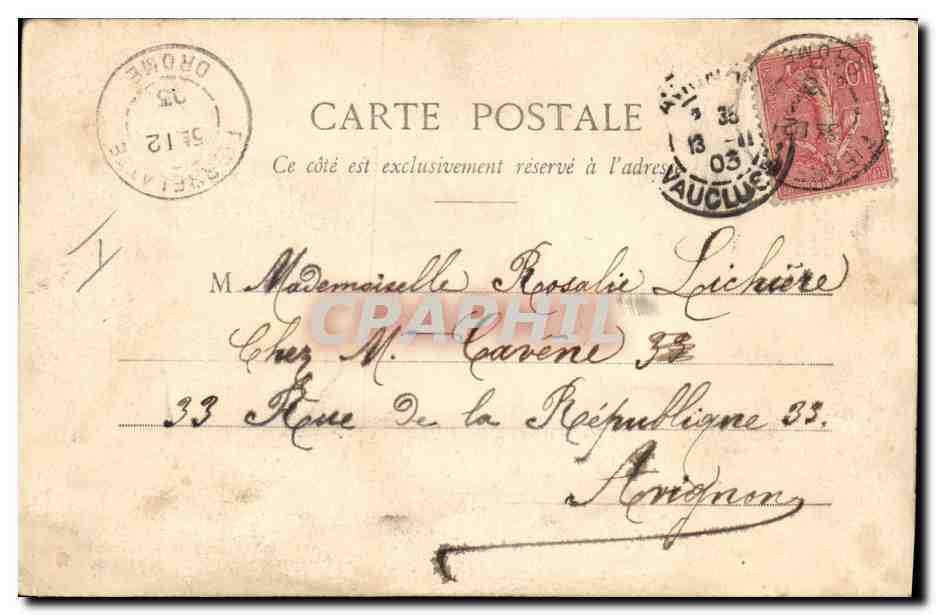 CARTE POSTALE
Ce côté est exclusivement réservé à l'adres
DROME
03
12
VAUCLUSE
03
10
M Mademoiselle Rosalie Lichière
Chez M. Cavène 33
33 Rue de la République 33.
Avignon
CPAPHIL